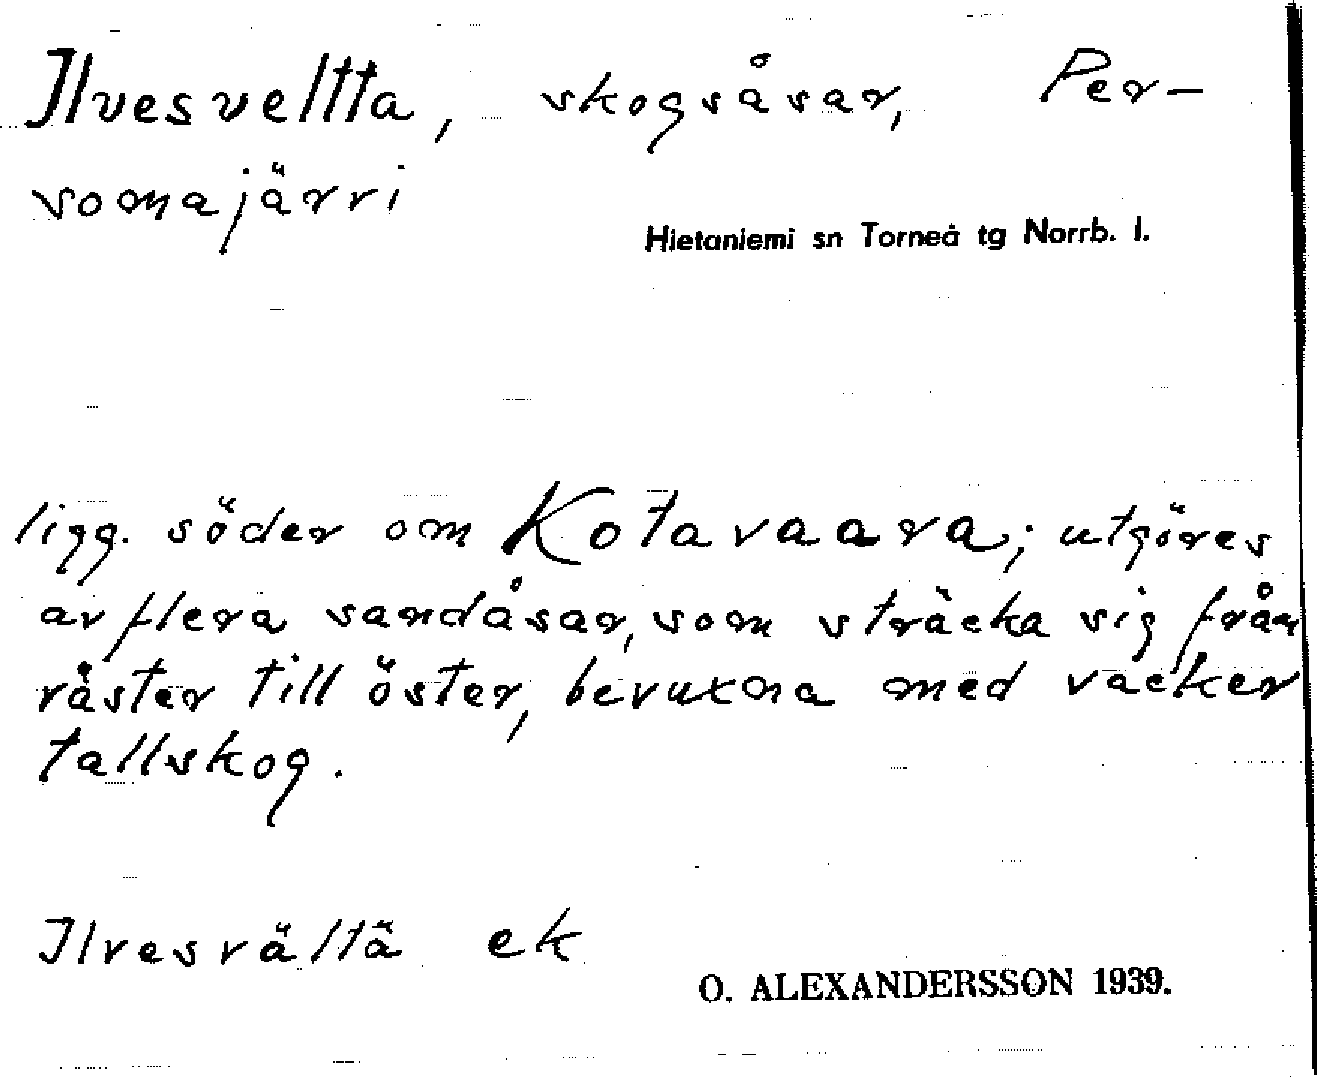 Ilvesveltta, skogsåsar, Per-
somajärvi
Hietaniemi sn Torneå tg Norrb. l.
ligg. söder om Kotavaara; utgöres
av flera sandåsar, som sträcka sig från
väster till öster, bevuxna med vacker
tallskog.
Ilvesvältä ek
O. ALEXANDERSSON 1939.